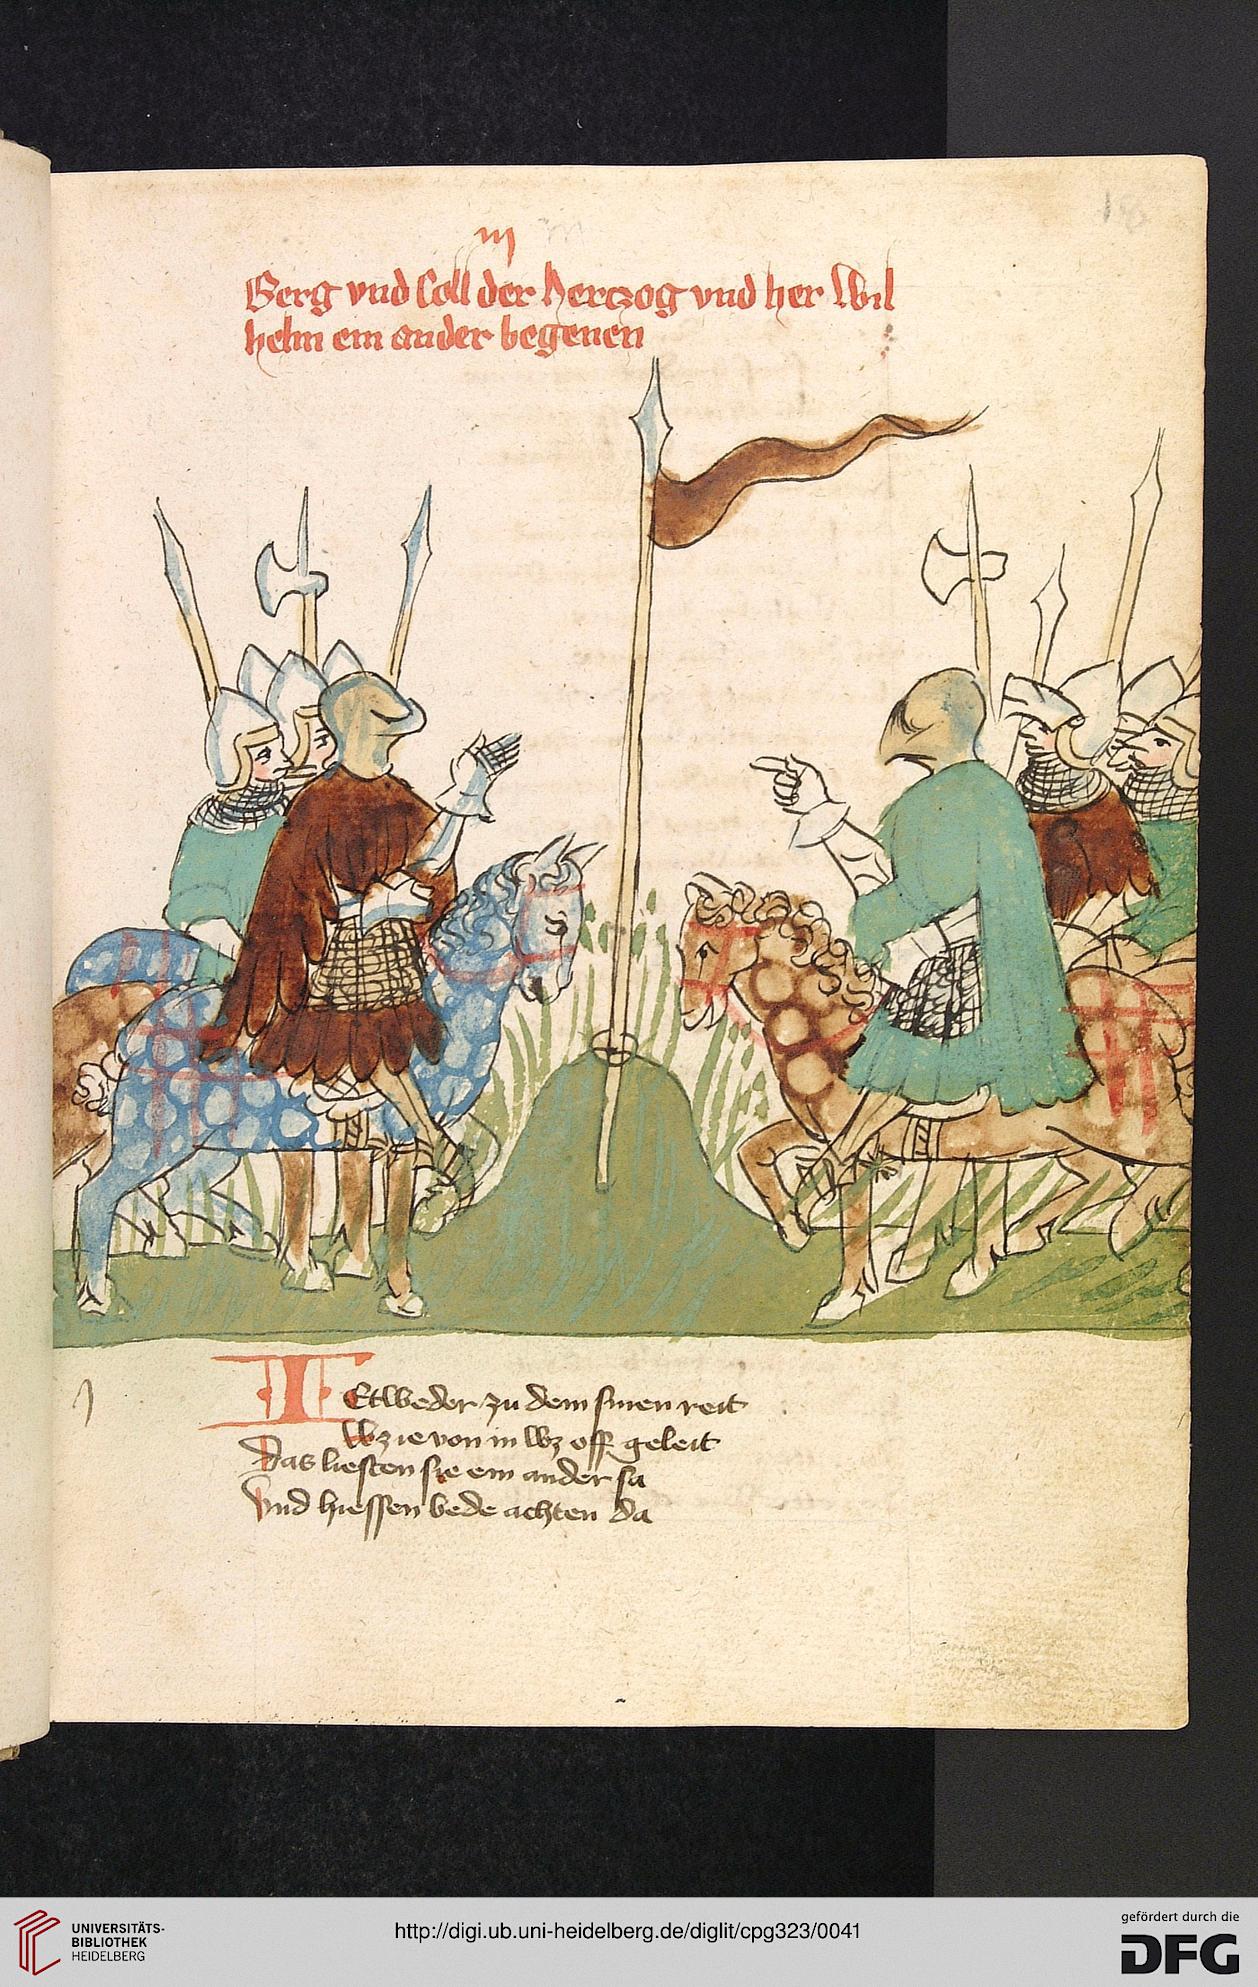 18
m
Berg vnd soll der hertzog vnd her Wil
helm ein ander begenen
IEtweder zu dem sinen reit
Wz ie von in wz off geleit
Das liesten sie ein ander sa
Vnd hiessen bede achten da
UNIVERSITÄTS-
BIBLIOTHEK
HEIDELBERG
http://digi.ub.uni-heidelberg.de/diglit/cpg323/0041
gefördert durch die
DFG